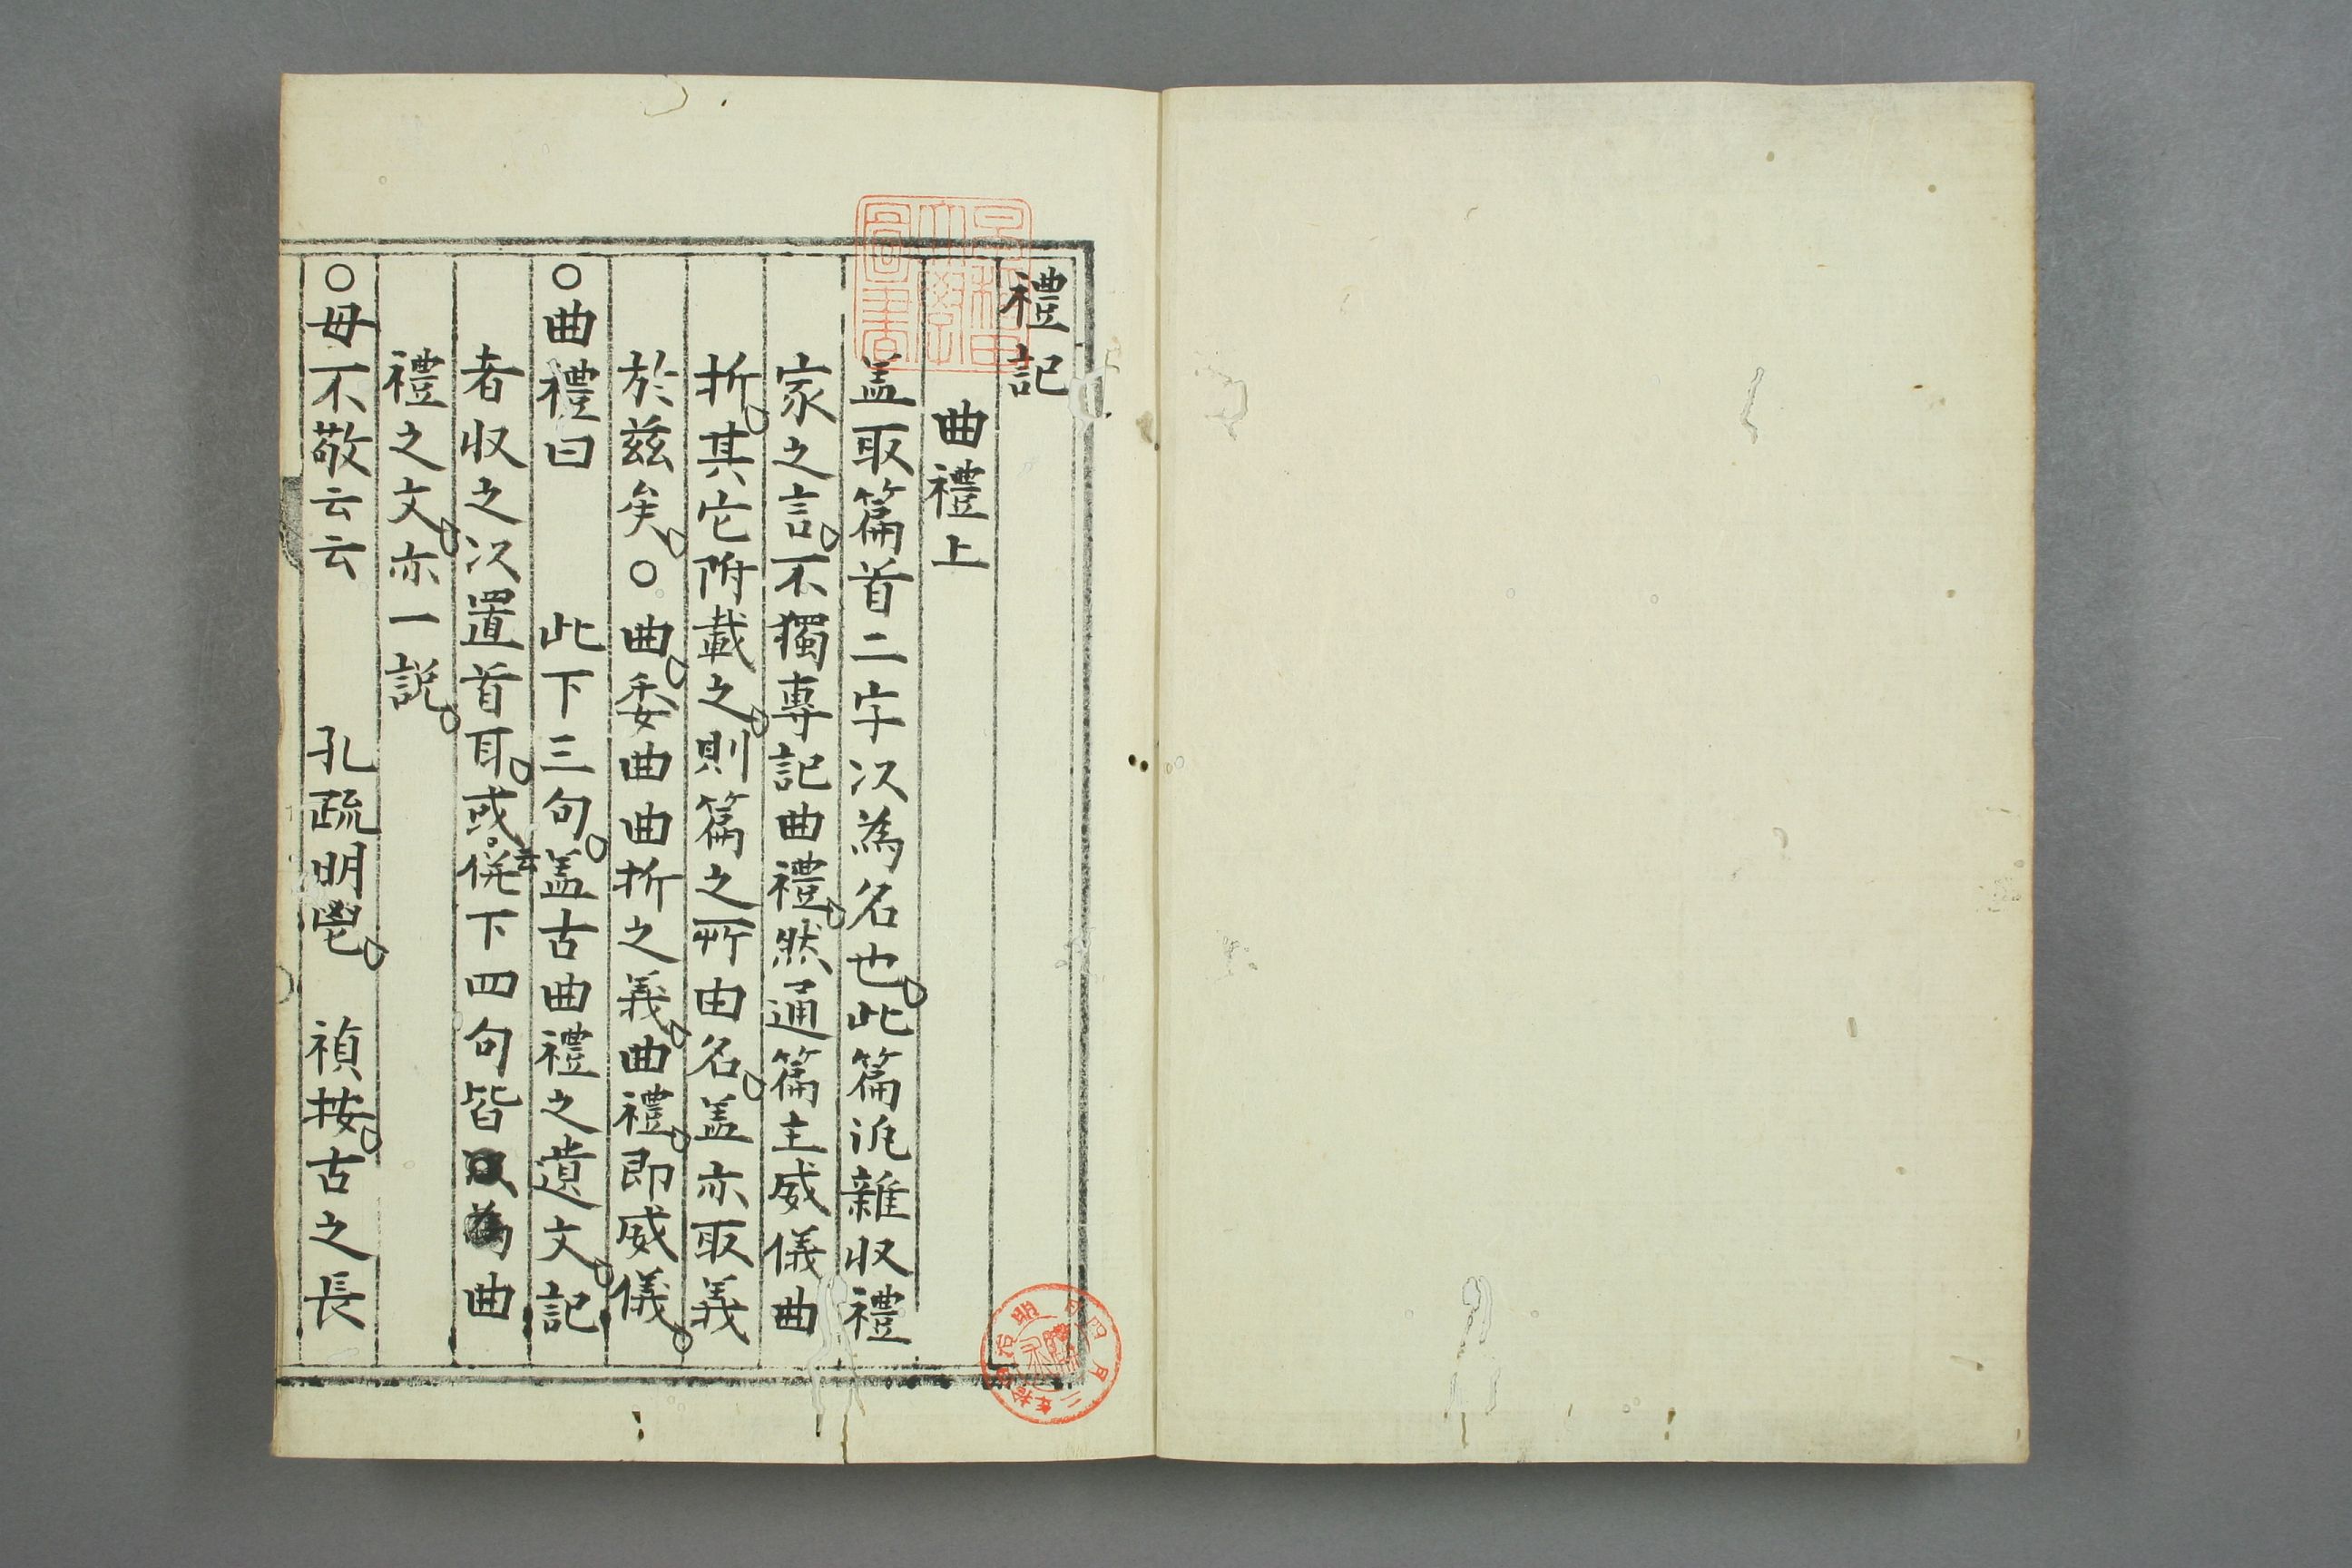 禮記
曲禮上
盖取篇首二字次為名也此篇汎雜収禮
家之言不獨專記曲禮然通篇主威儀曲
折其它附載之則篇之所由名盖亦取義
於兹矣〇曲委曲曲折之義曲禮即威儀
〇曲禮曰 此下三句盖古曲禮之遺文記
者収之次置首耳或云併下四句皆為曲
禮之文亦一説
〇毋不敬云云 孔疏明鬯 禎按古之長
早稲田大學圖書
明治 四月